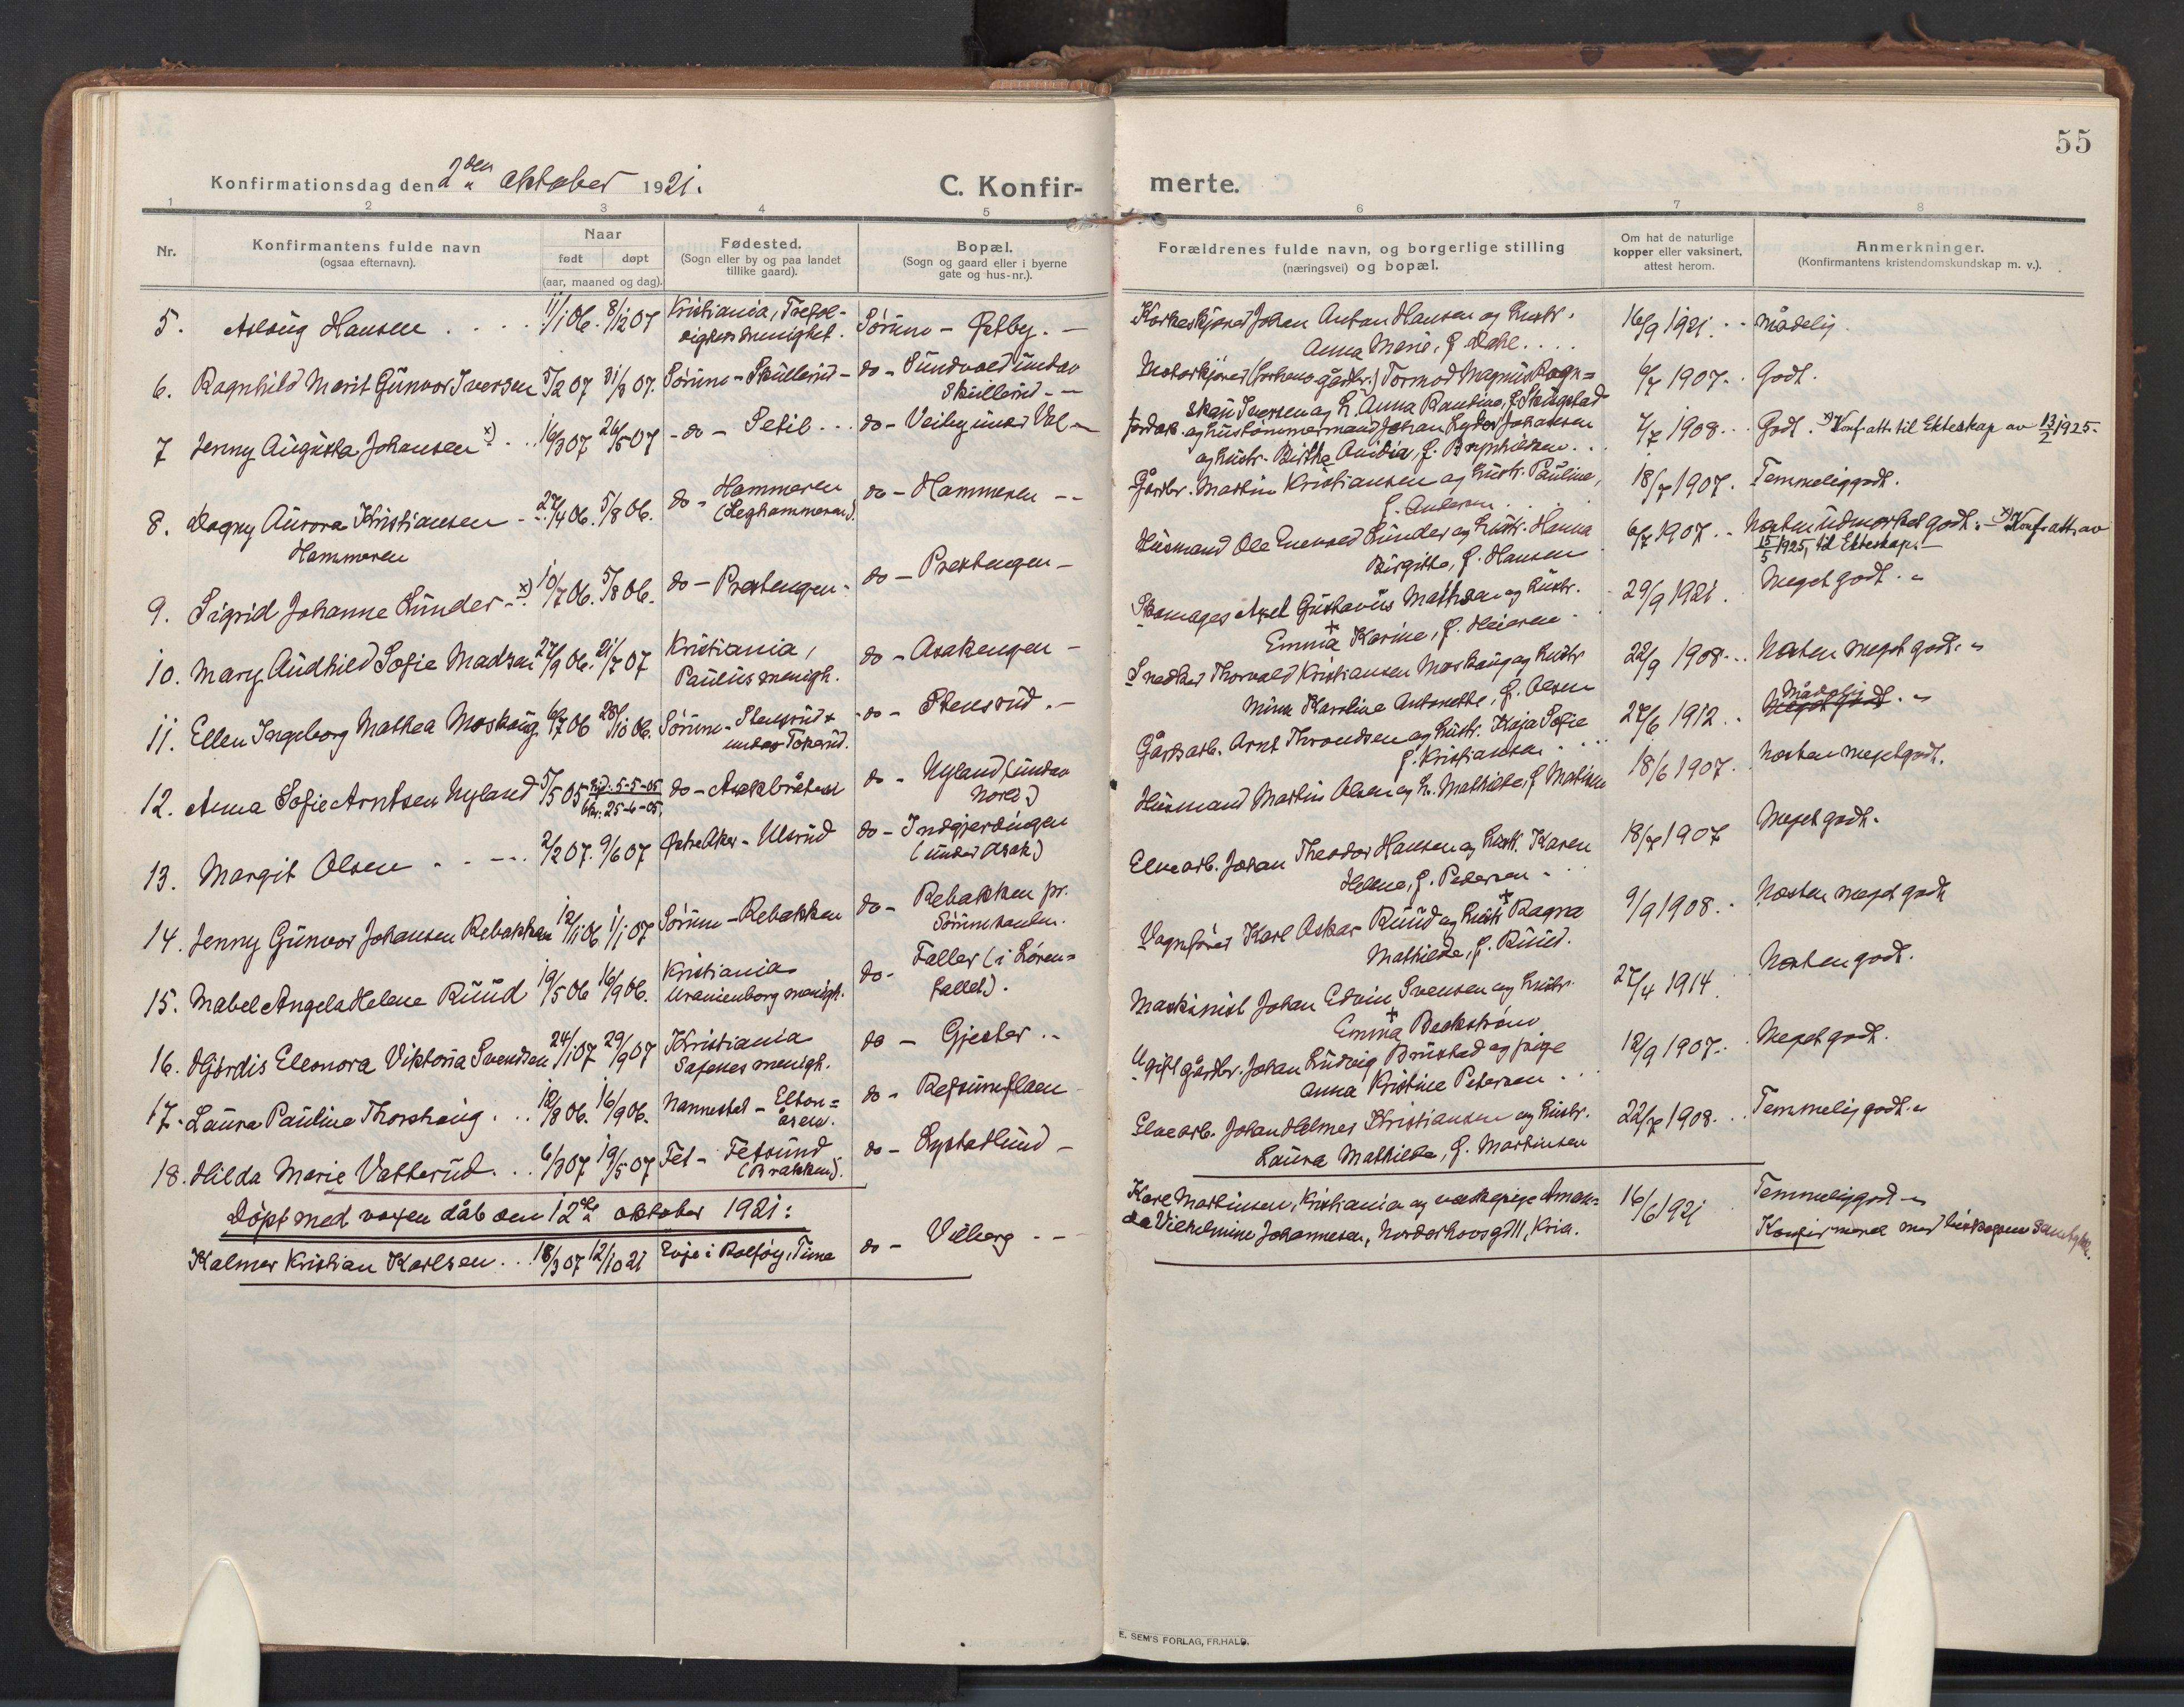 55
Konfirmationsdag den 2den oktober 1921.
C. Konfir-
merte.
1 2 3 4 5 6 7 8
Nr.
Konfirmantens fulde navn
(ogsaa efternavn).
Naar
født døpt
(aar, maaned og dag).
Fødested.
(Sogn eller by og paa landet
tillike gaard).
Bopæl.
(Sogn og gaard eller i byerne
gate og hus-nr.).
Forældrenes fulde navn, og borgerlige stilling
(næringsvei) og bopæl.
Om hat de naturlige
kopper eller vaksinert,
attest herom.
Anmerkninger.
(Konfirmantens kristendomskundskap m. v.).
5. Aslaug Hansen 11/1 06. 8/12 07 Kristiania, Trefol-
dighets menighet. Sørum - Østby. -
Johan Anton Hansen og hustr.
Anna Marie, f. Dahl
16/9 1921. Mådelig.
6. Ragnhild Marit Gunvor Iversen 5/2 07 31/3 07. Sørum - Skullerud - do - Sundvold under
Skullerud -
Motorkjører (forhens gårdbr.) Tormod Magnus Ragn=
Iversen og h. Anna Randine, f. Skugstad
6/7 1907. Godt.
7 Jenny Augusta Johansen x) 16/3 07 26/5 07 - do - Setil do - Veiby under Val -
Jordarb. og hustømmermand Johan Lyder Johansen
og hustr. Birthe f. Brynhildsen
4/7 1908. Godt. x) Konf. att. til Ekteskap av 13/2 1925.
8. Dagny Aurora Kristiansen
Hammeren
27/4 06. 5/8 06. do - Hammeren
(Leghammeren). do - Hammeren --
Gårdbr. Martin Kristiansen og hustr. Pauline,
f. Andersen
18/7 1907. Temmelig godt.
9. Sigrid Johanne Lunder x) 10/7 06. 5/8 06. do - Prestengen - do - Prestengen -
Husmand Ole Enevold Lunder og hustr. Hanna
Birgitte, f. Hansen
6/7 1907. Næsten udmerket godt. - x) Konf. att. av
15/5 1925, til Ekteskap. -
10. Mary Audhild Sofie Madsen 27/9 06. 21/7 07 Kristiania,
Paulus menigh. do - Asakengen -
Skomager Axel Gustavus Mathsen og hustr.
Emma Karine, f. Heieren
29/9 1921. Meget godt.
11. Ellen Ingeborg Mathea Moshaug 6/7 06 28/10 06. Sørum - Stensrud
under Tokerud. do - Stensrud. -
Snedker Thorvald Kristiansen Moshaug og hustr
Mina Karoline Antonette, f. Olsen
22/9 1908. Næsten meget godt.
12. Anna Sofie Arntsen Nyland 5/5 05 Hjd. 5-5-05
kir. 25-6-05. do - Asakbråten do - Nyland (under
Nord.)
Gårdsarb. Arnt Throndsen og hustr. Kaja Sofie
f. Kristiansen
27/6 1912. Mådelig
Meget godt.
13. Margit Olsen 2/2 07. 9/6 07 Østre Aker - Ulsrud do - Indgjerdingen
(under Asak)
Husmand Martin Olsen og h. Mathilde, f. Madsen
18/6 1907. Næsten meget godt.
14. Jenny Gunvor Johansen Rebakken 12/11 06 1/1 07 Sørum - Rebakken do - Rebakken pr.
Sørumsanden.
Elvearb. Johan Theodor Hansen og hustr. Karen
Helene, f. Pedersen
18/7 1907 Meget godt.
15. Mabel Angela Helene Ruud 19/5 06 16/9 06. Kristiania
Uranienborg menigh. do - Faller (i Løren=
fallet).
Vognfører Karl Oskar Ruud og hustr. Ragna
Mathilde, f. Ruud.
9/9 1908. Næsten meget godt
16. Hjørdis Eleonora Viktoria Svendsen 24/1 07 29/9 07 Kristiania
Sofenes menigh. do - Gjester
Maskinist Johan Edvin Svensen og hustr.
Emma Beckstrøm
27/4 1914. Næsten godt.
17. Laura Pauline Thorshaug. 12/8 06. 16/9 06. Nannestad - Elton=
åsen. do - Refsumflaen
Ugift gårdbr. Johan Ludvig Brustad og pige
Anna Kristine Petersen
12/9 1907. Meget godt.
18. Hilda Marie Vatterud. 6/3 07 19/5 07 Fet - Fetsund
(Brakken). do - Lystadlund -
Elvearb. Johan Helmer Kristiansen og hustr.
Laura Mathilde, f. Martinsen
22/7 1908. Temmelig godt.
Døpt med voxen dåb den 12te oktober 1921:
Kalmar Kristian Karlsen 18/3 07 12/10 21 Evje i Rolfsøy, Tune do - Vilberg --
Karl Martinsen, Kristiania og vaskepige Aman=
da Vilhelmine Johannesen, Nordahl Kria.
16/6 1921 Temmelig godt -
Konfirmeret med biskopens samtykke.
E. SEM'S FORLAG, FR.HALD.